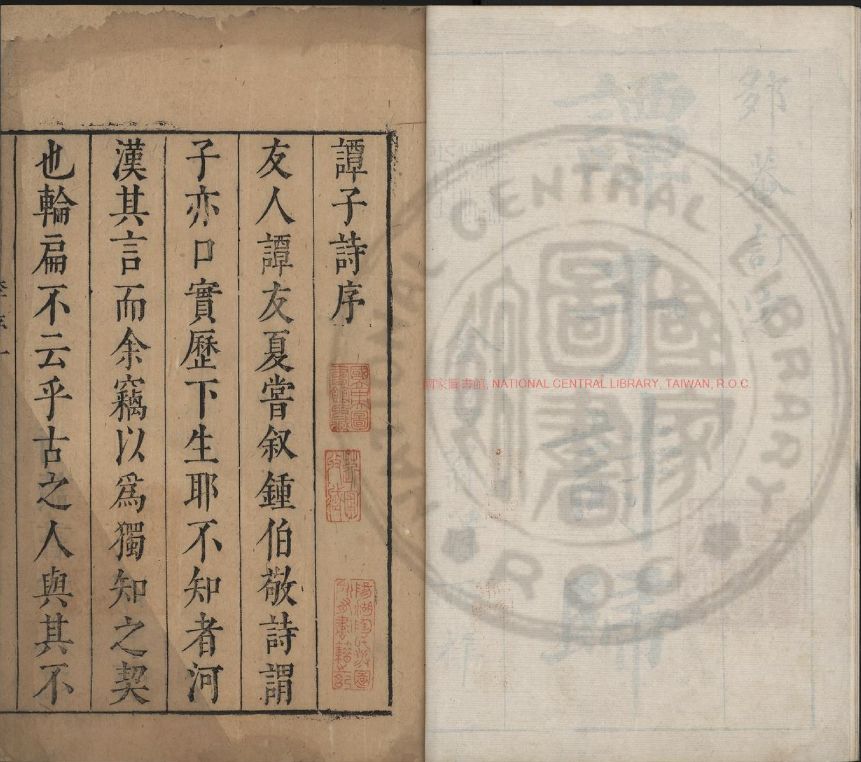 譚子詩歸
譚子詩序
友人譚友夏嘗叙鍾伯敬詩謂
子亦口實歷下生耶不知者河
漢其言而余竊以爲獨知之契
也輪扁不云乎古之人與其不
國家圖書館, NATIONAL CENTRAL LIBRARY, TAIWAN, R.O.C
NATIONAL CENTRAL LIBRARY
R.O.C
國家圖書館